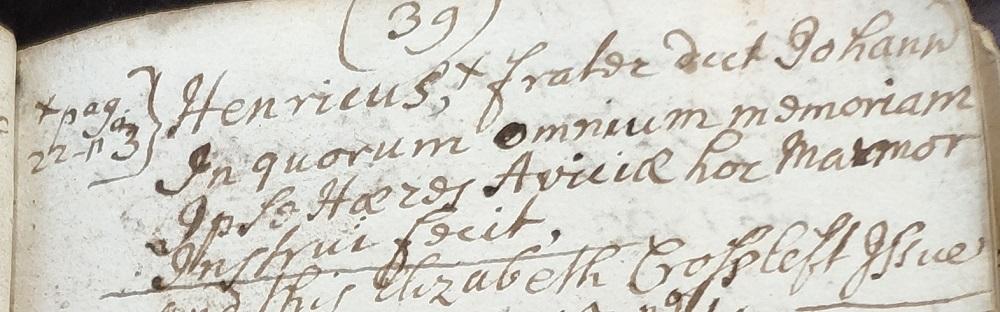 (39)
+pag. } Henricus,+ frater dict Johann
22-n 3 } In quorum omnium memoriam
Ipse Hæres Aviciæ hoc Marmor
Instrui fecit.
and this Elizabeth Cross left Issue